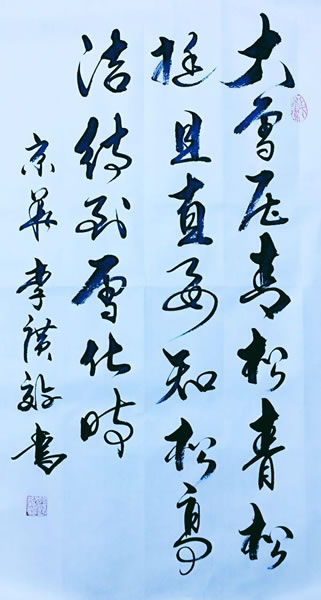 大雪压青松青松
挺且直要知松高
洁待到雪化時
京華李書